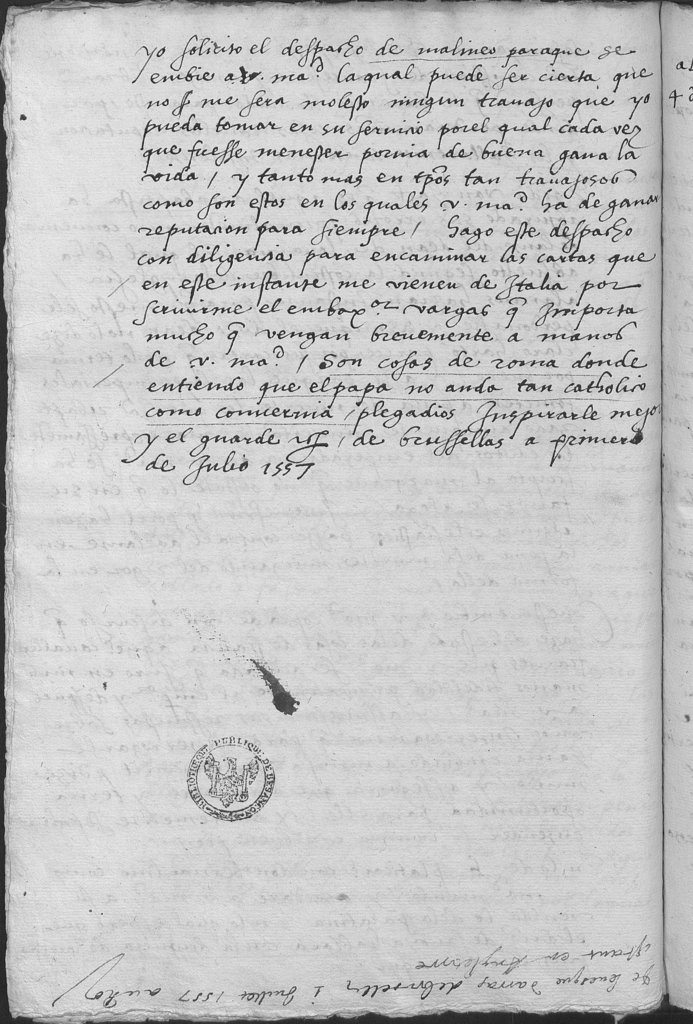 yo solicito el despacho de malines paraque se
embie a v. ma.d la qual puede ser cierta que
no me sera molesto ningun travajo que yo
pueda tomar en su servicio porel qual cada vez
que fuesse menester pornia de buena gana la
vida / y tanto mas en tpõs tan travajosos
como son estos en los quales v. ma.d ha de ganar
reputacion para siempre / hago este despacho
con diligencia para encaminar las cartas que
en este instante me vienen de Italia por
scrivirme el embax.or vargas q̃ Importa
mucho q̃ vengan brevemente a manos
de v. ma.d / Son cosas de roma donde
entiendo que el papa no anda tan catholico
como convernia / plega dios Inspirarle mejor
y el guarde / de brussellas a primero
de Julio 1557
BIBLIOTHEQUE PUBLIQUE DE BESANÇON
Levesque darras de bruselles 1 Juillet 1557 au Roy
estant en Angleterre